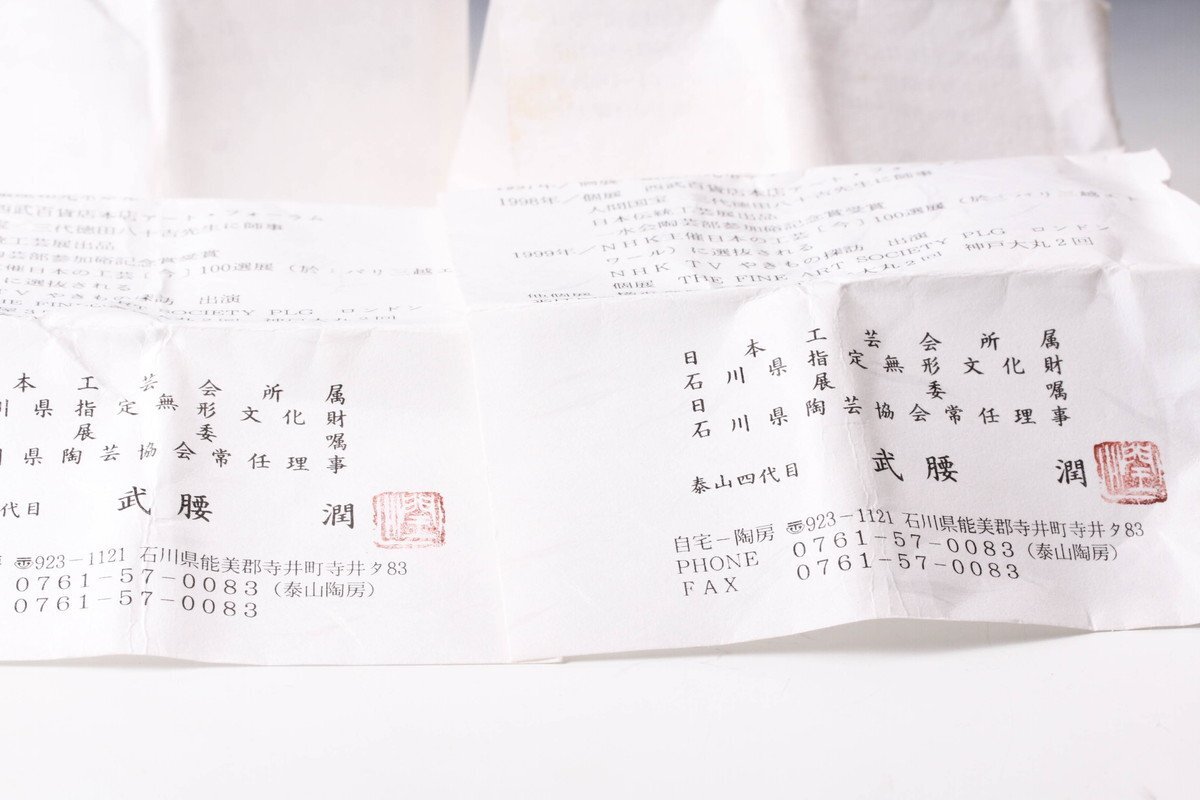 西武百貨店本店アート・フォーラム
三代徳田八十吉先生に師事
工芸展出品
陶芸部参加硲記念賞受賞
主催日本の工芸〔今〕100選展（於：パリ三越エ
に選抜される
TV やきもの探訪 出演
SOCIETY PLG ロンドン
本工芸会所属
川県指定無形文化財
展委嘱
川県陶芸協会常任理事
代目 武腰 潤
〒923-1121 石川県能美郡寺井町寺井タ83
0761-57-0083（泰山陶房）
0761-57-0083
1998年／個展 西武百貨店本店アート・フォ
人間国宝 三代徳田八十吉先生に師事
日本伝統工芸展出品
一水会陶芸部参加硲記念賞受賞
1999年／NHK主催日本の工芸〔今〕100選展（於：パリ三越エト
ワール）に選抜される
NHK TV やきもの探訪 出演
個展 THE FINE ART SOCIETY PLG ロンドン
神戸大丸2回
日本工芸会所属
石川県指定無形文化財
日展委嘱
石川県陶芸協会常任理事
泰山四代目 武腰 潤
自宅－陶房 〒923-1121 石川県能美郡寺井町寺井タ83
PHONE 0761-57-0083（泰山陶房）
FAX 0761-57-0083